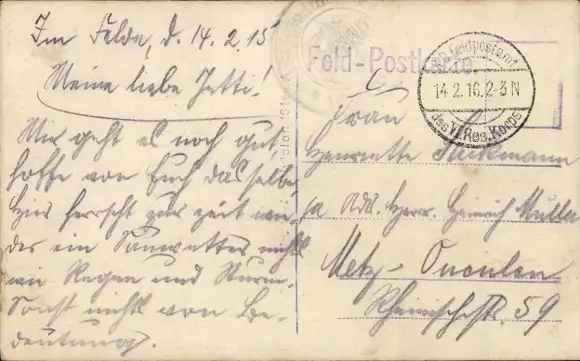 Im Felde, d. 14.2.15
Meine liebe Jetti!
Mir geht es noch gut,
hoffe von Euch dasselbe.
Hier herrscht zur Zeit wie-
der ein Sauwetter nichts
wie Regen und Sturm.
Sonst nichts von Be-
deutung.
Feld-Postkarte
Feldpostamt
14.2.16. 2-3 N
des VI. Res. Korps
Frau
Henriette
Adr. Herrn Heinrich Müller
Metz-
Rheinischestr. 59